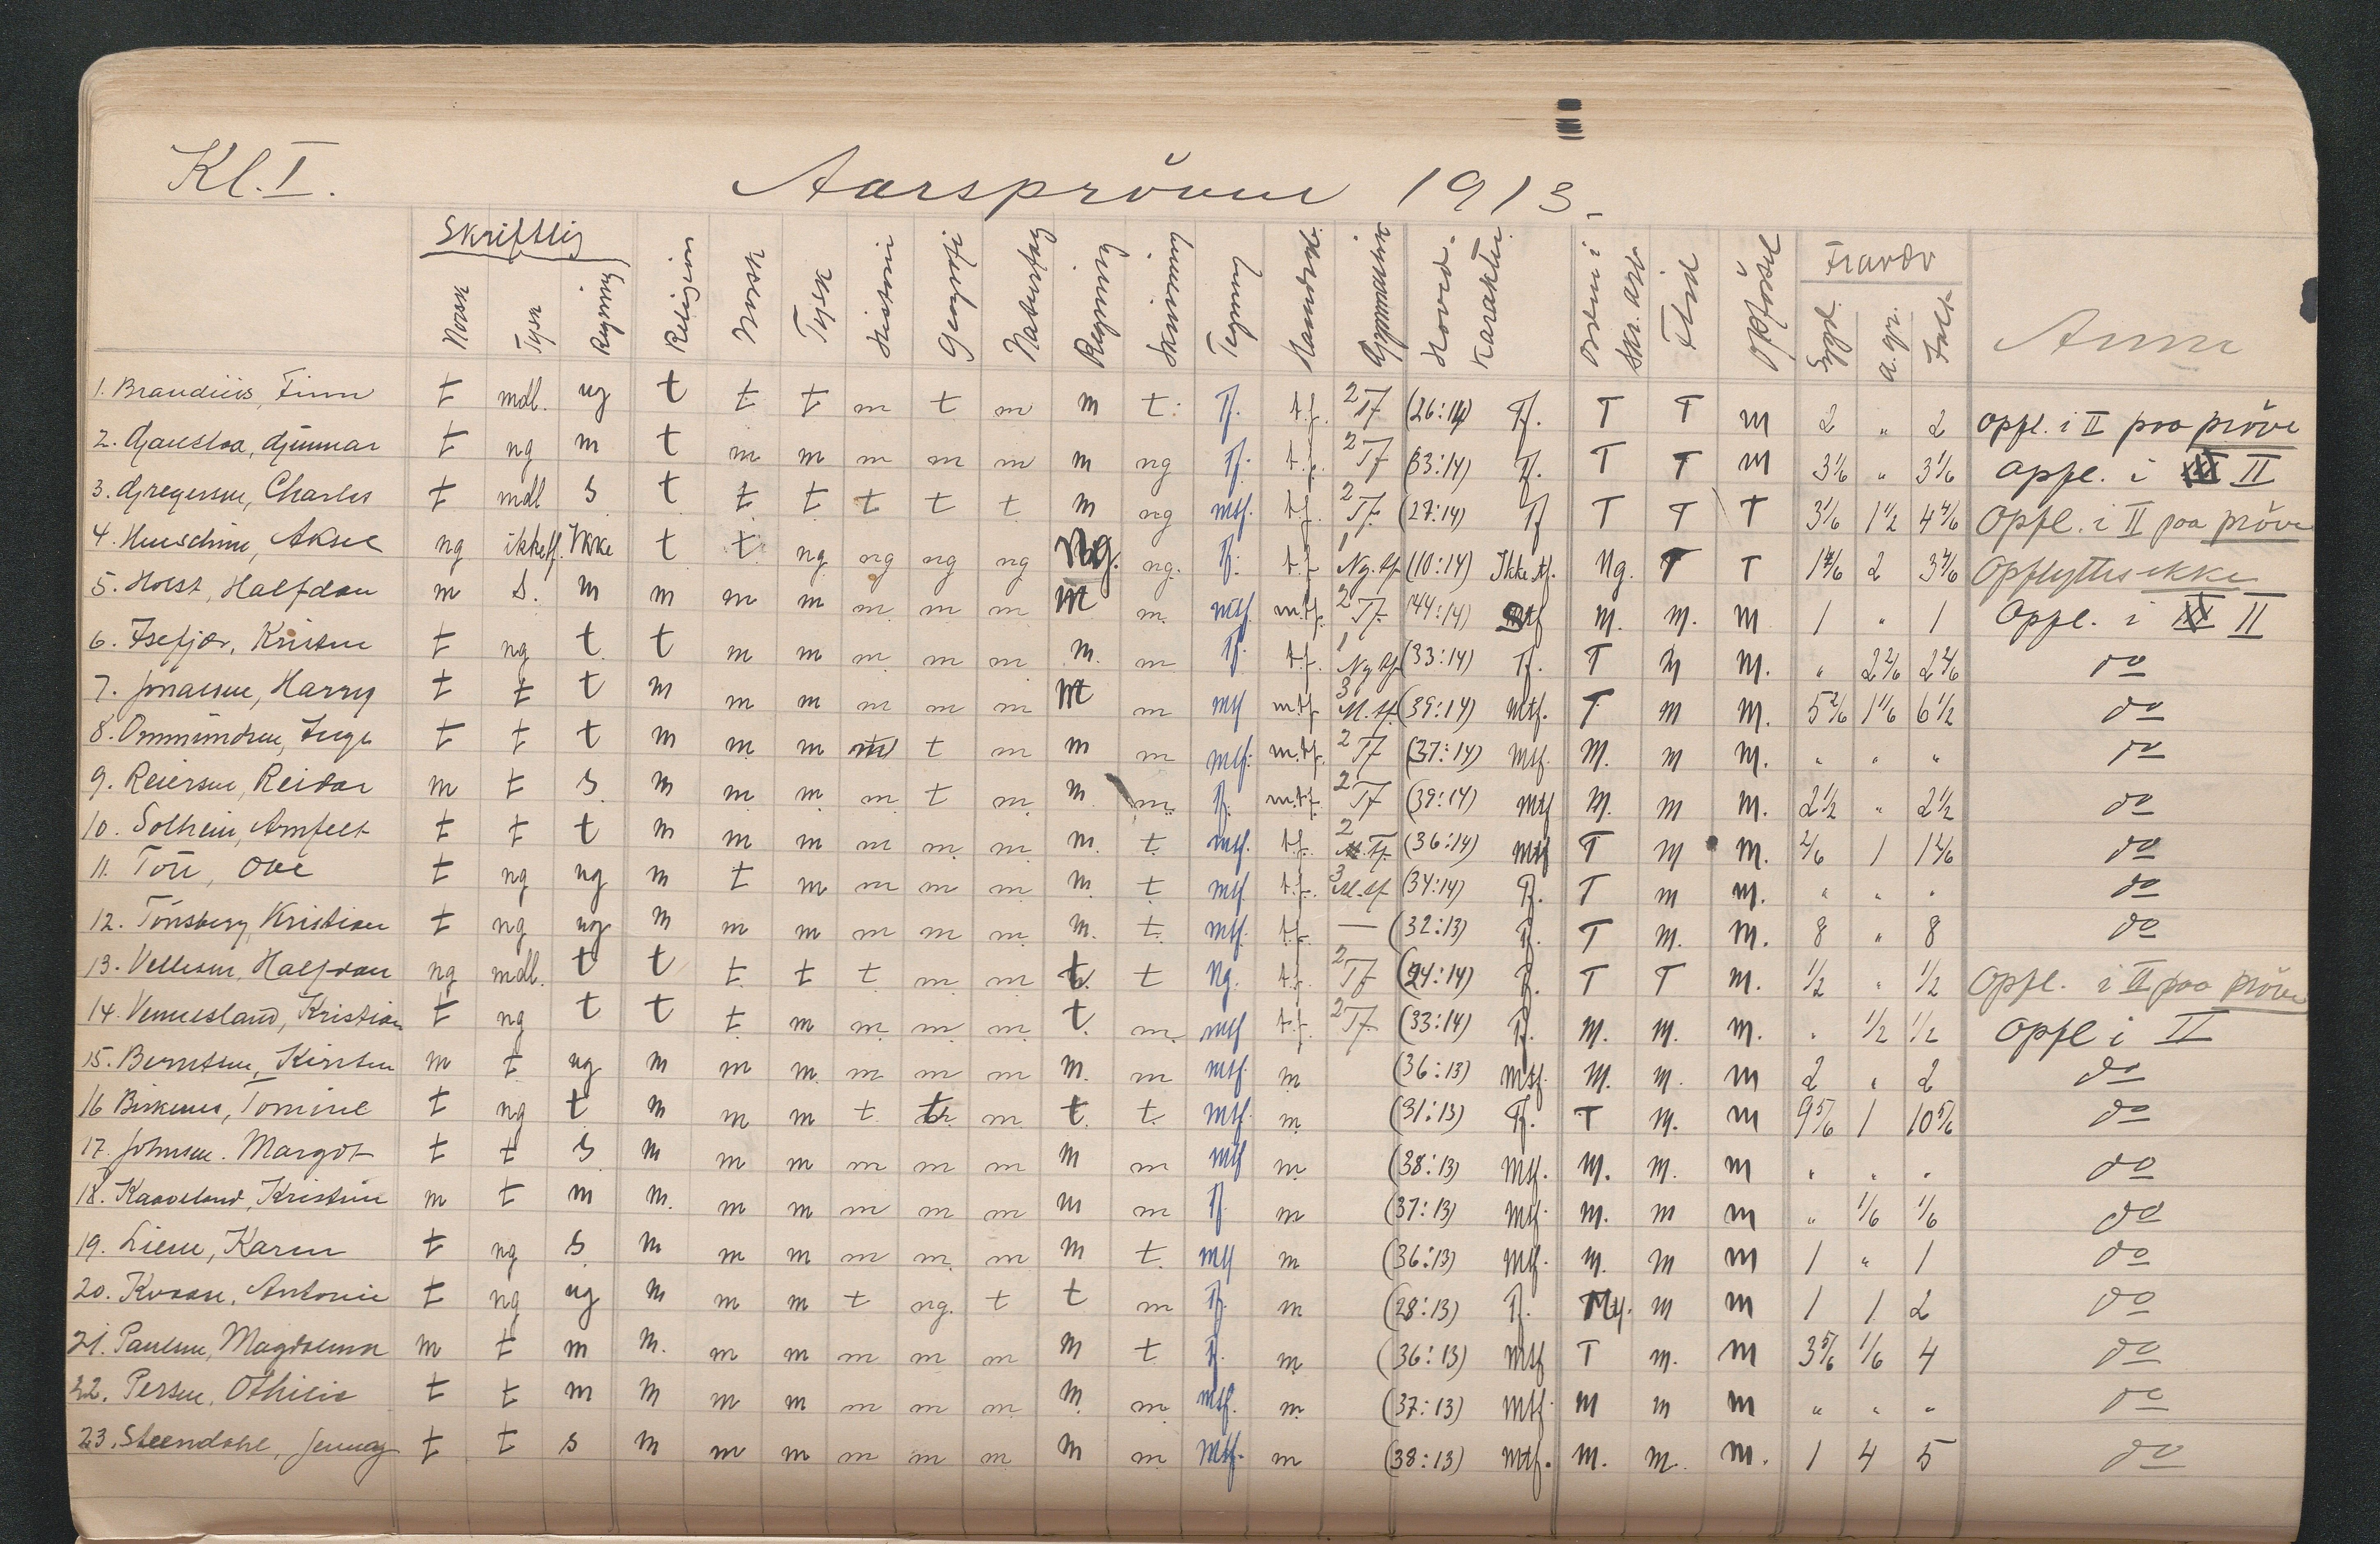 Kl. I.
Aarspröven 1913.
Skriftlig
Norsk Tysk Regning Religion Norsk Tysk Historie Geografi Naturfag Regning Skrivning Tegning Haandarb. Gymnastik Hoved-Karakter. Orden i Skr. arb Flid Opförsel Fravær Sygd. a. gr. Ialt Anm
1. Brandiiis, Finn t mdl. ng t t t m t m m t. Tf. t.f. 2 Tf (26:14) Tf. T T M 2 " 2 Opfl. i II paa pröve
2. Gjaustaa, Gunnar t ng m t m m m m m m ng Tf. t.f. 2 Tf (33:14) Tf. T T M 3 1/6 " 3 1/6 Opfl. i II
3. Gregersen, Charles t mdl s t t t t t t m ng mtf. t.f. 2 Tf. (27:14) Tf T T T 3 1/6 1 1/2 4 4/6 Opfl. i II paa pröve
4. Aksel ng ikketf. Ikke t t ng ng ng ng Ng. ng. Tf. t.f 1 Ng. tf (10:14) Ikke tf. Ng. T T 1 4/6 2 3 4/6 Opflyttes ikke
5. Holst, Halfdan m s. m m m m m m m m m. mtf m.tf. 2 Tf. (44:14) Mtf M. M. M 1 " 1 Opfl. i II
6. Isefjær, Kristen t ng t t m m m m m m. m Tf. t.f. 1 Ng tf (33:14) Tf. T M M. " 2 2/6 2 2/6 do
7. Jonassen, Harry t t t m m m m m m m m mtf m.tf 3 M. tf. (39:14) Mtf. T M M. 5 2/6 1 1/6 6 1/2 do
8. Ommundsen, Inga t t t m m m m t m m m mtf. m.tf. 2 Tf (37:14) Mtf. M. M M. " " " do
9. Reiersen, Reidar m t s. m m m. m t m. m m. Tf. m.tf. 2 Tf (39:14) Mtf M. M M. 2 1/2 " 2 1/2 do
10. Solheim, Arnfelt t t t m m m m m. m. m. t. mtf. t.f. 2 Tf. (36:14) Mtf T M M. 2/6 1 1 2/6 do
11. Ove t ng ng m t m m m m m. t mtf. t.f. 3 M. tf (34:14) Tf. T M M. " " " do
12. Tönsberg, Kristian t ng ng m m m m m m. m. t. mtf. t.f. — (32:13) Tf. T M. M. 8 " 8 do
13. Vellesen, Halfdan ng mdl. t t t t t m m t. t Ng. t.f. 2 Tf (24:14) Tf. T T M. 1/2 " 1/2 Opfl. i II paa pröve
14. Vennesland, Kristian t ng t t t m m m m t. m. mtf t.f. 2 Tf (33:14) Tf. M. M. M. " 1/2 1/2 Opfl i II
15. Berntsen, Kirsten m t ng m m m. m m m m. m mtf. m (36:13) Mtf. M. M. M 2 " 2 do
16 Birkenes, Tomine t ng t m m m t t m t. t. mtf. m (31:13) Tf. T M. M 9 5/6 1 10 5/6 do
17. Johnsen. Margot t t s m m m m m m m m mtf m (38:13) Mtf. M. M. M " " " do
18. Kaaveland, Kristine m t m m. m m m m m m m Tf m (37:13) Mtf. M. M M " 1/6 1/6 do
19. Liene, Karen t ng s m m m m m. m m t. mtf m (36:13) Mtf. M. M M 1 " 1 do
20. Kvaase, Antonie t ng ng m m m t ng. t t m Tf. m (28:13) Tf. Mtf. M M 1 1 2 do
21. Paulsen, Magdalena m t m m. m m m m m m t Tf. m (36:13) Mtf T M. M 3 5/6 1/6 4 do
22. Persen, Othilie t t m m m m m m m. m. m mtf. m. (37:13) Mtf. M M M " " " do
23. Steendahl, Jenny t t s m m m m m m m m Mtf. m (38:13) Mtf. M. M. M. 1 4 5 do